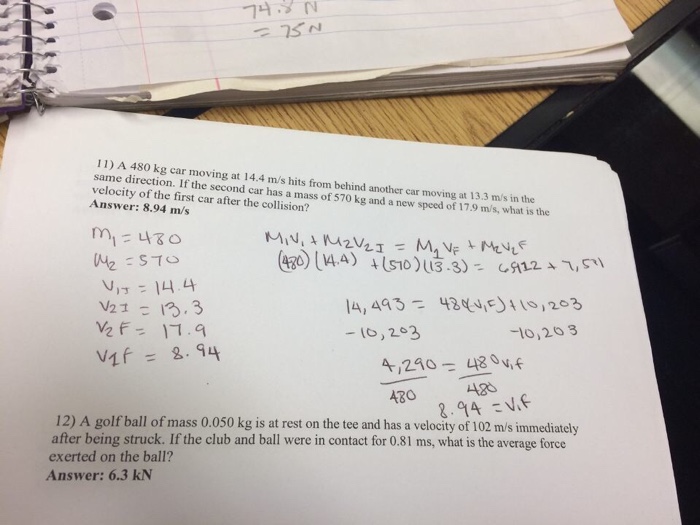 74.8 N
= 75 N
11) A 480 kg car moving at 14.4 m/s hits from behind another car moving at 13.3 m/s in the
same direction. If the second car has a mass of 570 kg and a new speed of 17.9 m/s, what is the
velocity of the first car after the collision?
Answer: 8.94 m/s
m₁ = 480
m₂ = 570
V₁I = 14.4
V₂I = 13.3
V₂F = 17.9
V1f = 8.94
M₁V₁ + M2V2I = M1VF + M2V2F
(480)(14.4) + (570)(13.3) = 6912 + 7,581
14,493 = 480(V₁F) + 10,203
-10,203 -10,203
4,290 = 480v₁f
480 480
8.94 = V₁f
12) A golf ball of mass 0.050 kg is at rest on the tee and has a velocity of 102 m/s immediately
after being struck. If the club and ball were in contact for 0.81 ms, what is the average force
exerted on the ball?
Answer: 6.3 kN